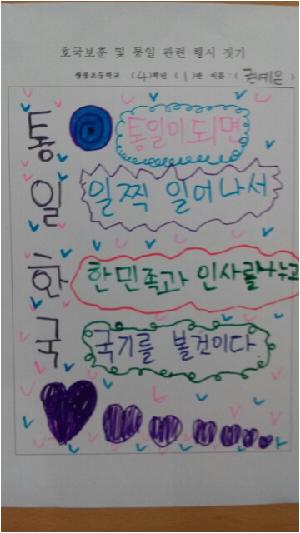 호국보훈 및 통일 관련 행시 짓기
초등학교 (4)학년 (1)반 이름:(예은)
통 통일이되면
일 일찍 일어나서
한 한민족과 인사를나누고
국 국기를 볼것이다.